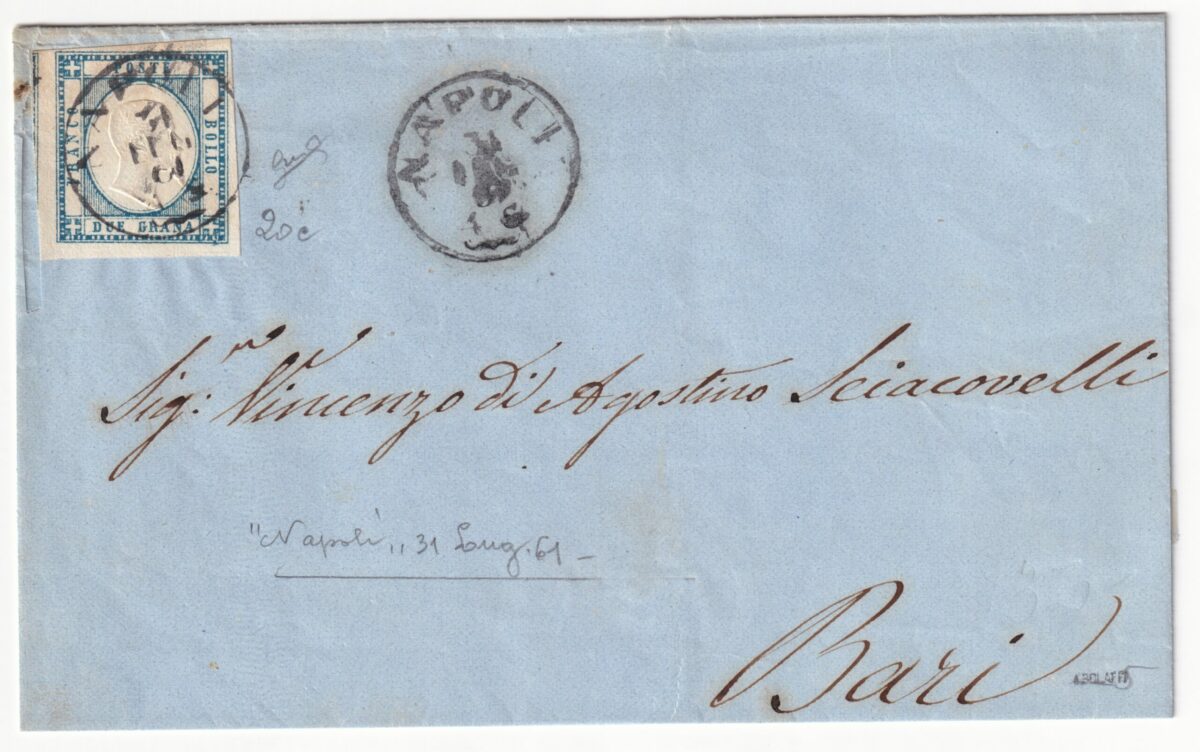 POSTE
FRANCO
BOLLO
DUE GRANA
NAPOLI
NAPOLI
20c
Sig.r Vincenzo di Agostino Sciacovelli
"Napoli" 31 Lug. 61 –
Bari
A.BOLAFFI